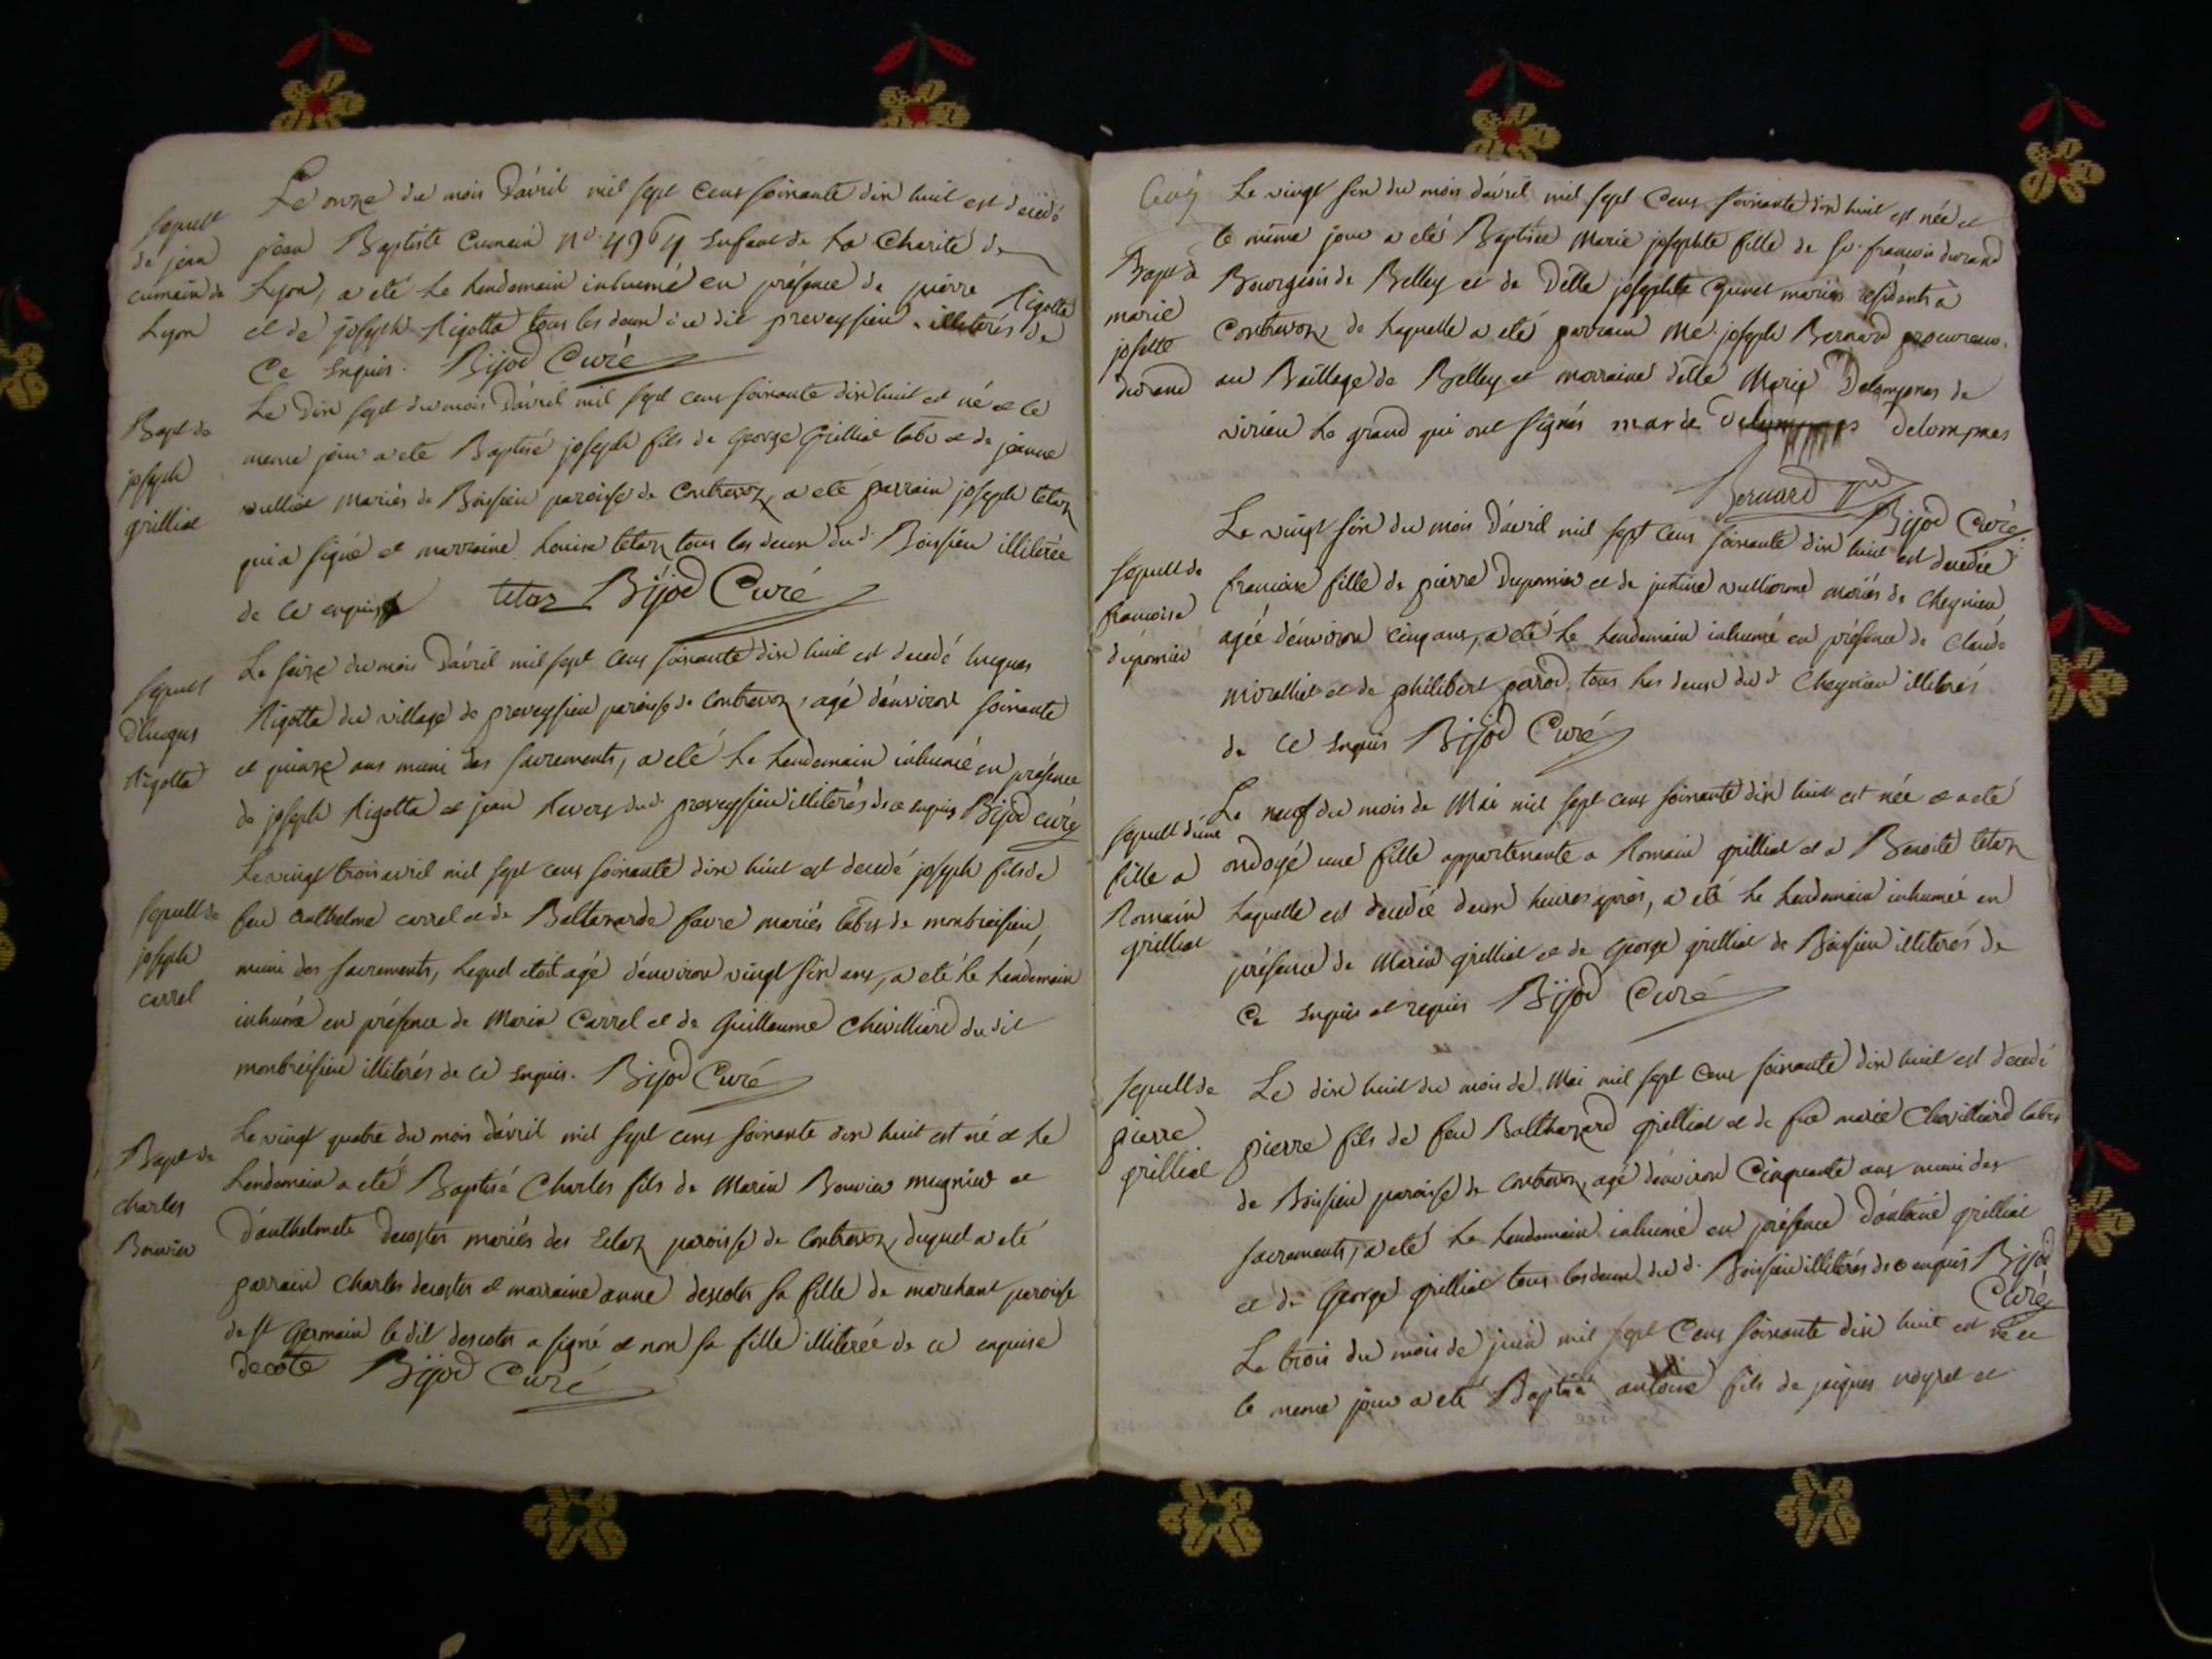 Le onze du mois d'avril mil sept cens soixante dix huit est decedé
sepult
de jean
cumain de
Lyon
jean Baptiste Cumain n°. 4964 enfant de La Charité de
Lyon, a eté le lendemain inhumé en présence de pierre Rigotta
et de joseph Rigotta tous les deux du dit preveyssieu illiterés de
Ce enquis. Bijod Curé
Bapt de
joseph
grilliet
Le dix sept du mois d'avril mil sept cens soixante dix huit est né et le
meme jour a eté Baptisé joseph fils de George Grilliet labr et de jeanne
vulliet mariés de Boissieu paroisse de Contrevoz, a eté parrain joseph tetaz
qui a signé et marraine Louise tetaz tous les deux dud. Boissieu illiterée
de ce enquise tetaz Bijod Curé
sepult
d'lucques
Rigotta
Le seize du mois d'avril mil sept cens soixante dix huit est decedé lucques
Rigotta du village de preveyssieu paroisse de Contrevoz, agé d'environ soixante
et quinze ans muni des sacrements, a eté le lendemain inhumé en présence
de joseph Rigotta et jean Revery dud. preveyssieu illiterés de ce enquis Bijod curé
sepult de
joseph
carrel
Le vingt trois avril mil sept cens soixante dix huit est decedé joseph fils de
feu Anthelme carrel et de Baltazarde favre mariés labrs de montbreisieu,
muni des sacrements, lequel etoit agé d'environ vingt six ans, a eté le lendemain
inhumé en présence de Marin Carrel et de Guillaume Chevilliard du dit
montbreisieu illiterés de ce enquis. Bijod Curé
Bapt de
charles
Bouvier
Le vingt quatre du mois d'avril mil sept cens soixante dix huit est né et le
Lendemain a eté Baptisé Charles fils de Marin Bouvier mugnier et
d'anthelmete decostes mariés des Ecloz paroisse de Contrevoz, duquel a eté
parrain Charles decostes et marraine anne descotes sa fille de marchant paroisse
de st Germain le dit descotes a signé et non sa fille illiterée de ce enquise
decote Bijod Curé
Cinq
Bapt de
marie
josette
durand
Le vingt six du mois d'avril mil sept cens soixante dix huit est née et
le même jour a eté Baptisée Marie josephte fille de sr. francois durand
Bourgeois de Belley et de Délle josephte Guinet mariés résidants à
Contrevoz de laquelle a eté parrain Me. joseph Bernard procureur
au Baillage de Belley et marraine délle Marie Delompnes de
virieu le grand qui ont signés marie Delompnes
Bernard Bijod Curé
sepult de
francoise
dupomier
Le vingt six du mois d'avril mil sept cens soixante dix huit est decedée
francoise fille de pierre dupomier et de justine vulliermé mariés de Cheynieu
agée d'environ cinq ans, a eté le lendemain inhumé en présence de Claude
miralliet et de philibert perod, tous les deux dud. Cheynieu illiterés
de ce enquis Bijod Curé
sepult d'une
fille a
Romain
grilliet
Le neuf du mois de Mai mil sept cens soixante dix huit est née et a eté
ondoyé une fille appartenante a Romain grilliet et a Benoite tetaz
Laquelle est decedée deux heures après, a eté le lendemain inhumée en
présence de Marin grilliet et de George grilliet de Boissieu illiterés de
Ce enquis et requis Bijod Curé
sepult de
pierre
grilliet
Le dix huit du mois de Mai mil sept cens soixante dix huit est decedé
pierre fils de feu Balthazard grilliet et de fue marie Chevilliard labrs
de Boissieu paroisse de Contrevoz, agé d'environ Cinquante ans muni des
sacrements, a eté le lendemain inhumé en présence d'antoine grilliet
et de George grilliet tous les deux dud. Boissieu illiterés de ce enquis Bijod
Curé
Le trois du mois de juin mil sept cens soixante dix huit est né et
le meme jour a eté Baptisé antoine fils de jaiques noyret et